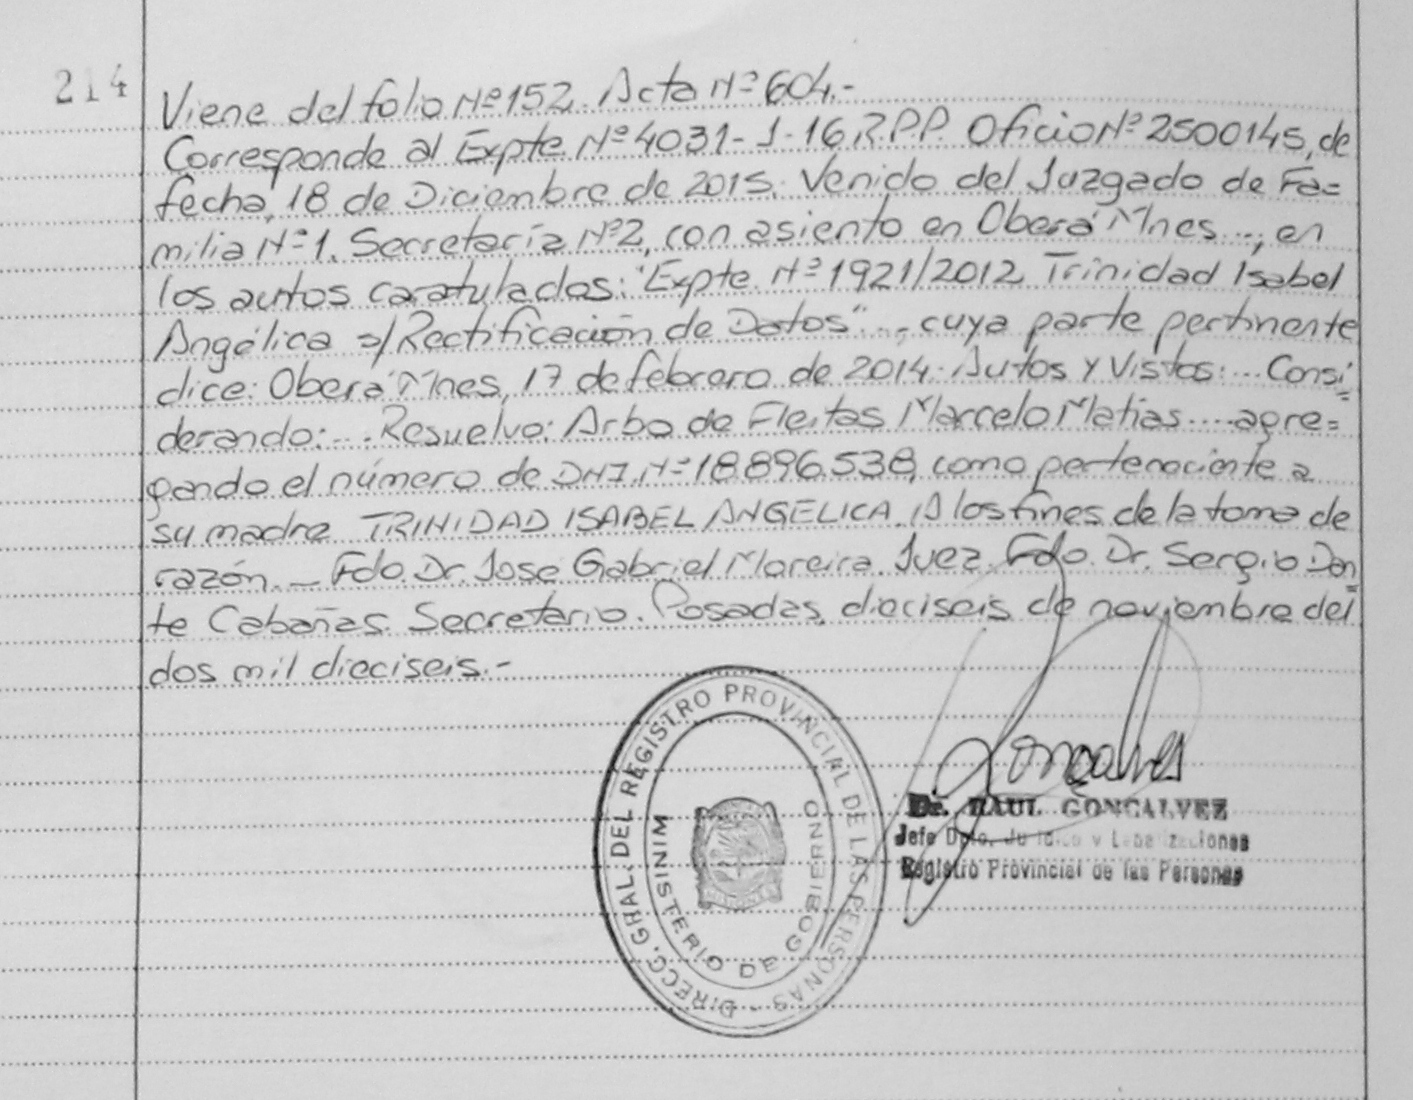 214
Viene del folio Nº 152. Acta Nº 604.-
Corresponde al Expte Nº 4031-J-16 R.P.P. Oficio Nº 2500145, de
fecha, 18 de Diciembre de 2015. Venido del Juzgado de Fa=
milia Nº 1. Secretaría Nº 2, con asiento en Oberá Mnes..., en
los autos caratulados: "Expte. Nº 1921/2012 Trinidad Isabel
Angélica s/ Rectificación de Datos"..., cuya parte pertinente
dice: Oberá Mnes, 17 de febrero de 2014. Autos y Vistos:... Consi=
derando:... Resuelvo: Arbo de Fleitas Marcelo Matias....agre=
gando el número de DNI. Nº 18.896.538, como perteneciente a
su madre TRINIDAD ISABEL ANGELICA. A los fines de la toma de
razón._ Fdo. Dr. Jose Gabriel Moreira Juez. Fdo. Dr. Sergio Dan=
te Cabañas Secretario. Posadas, dieciseis de noviembre del
dos mil dieciseis.-
DIRECC. GRAL. DEL REGISTRO PROVINCIAL DE LAS PERSONAS -
MINISTERIO DE GOBIERNO
Goncalves
Dr. RAUL GONCALVEZ
Jefe Dpto. Jurídico y Legalizaciones
Registro Provincial de las Personas